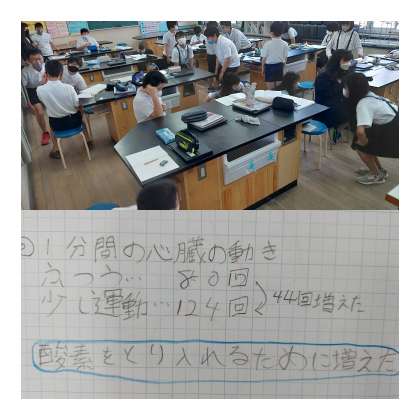 1分間の心臓の動き
ふつう… 80回
少し運動…124回
44回増えた
酸素をとり入れるために増えた